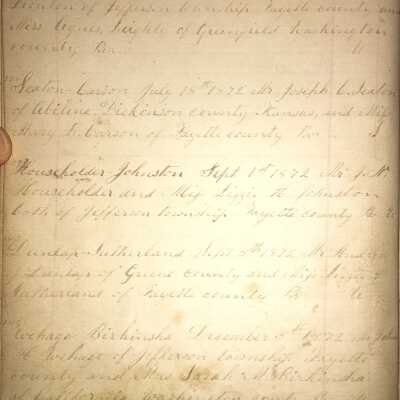 of Jefferson township Fayette county and
Miss Agnes Sleighte of Greenfield Washington
county Pa
Sexton-Carson July 18th 1872 Mr Joseph C. Sexton
of Abiline Dickinson county Kansas, and Miss
Mary K. Carson of Fayette county Pa
Householder Johnston Sept 1st 1872 Mr J. W.
Householder and Miss Lizzie H Johnston
both of Jefferson township Fayette county Pa
Dunlap-Sutherland Sept 5th 1872 Mr Andrew
J Dunlap of Greene county and Miss Lizzie
Sutherland of Fayette county Pa
Birkinsha December 5th 1872 Mr John
of Jefferson township Fayette
county and Mrs Sarah A Birkinsha
of California Washington county Pa